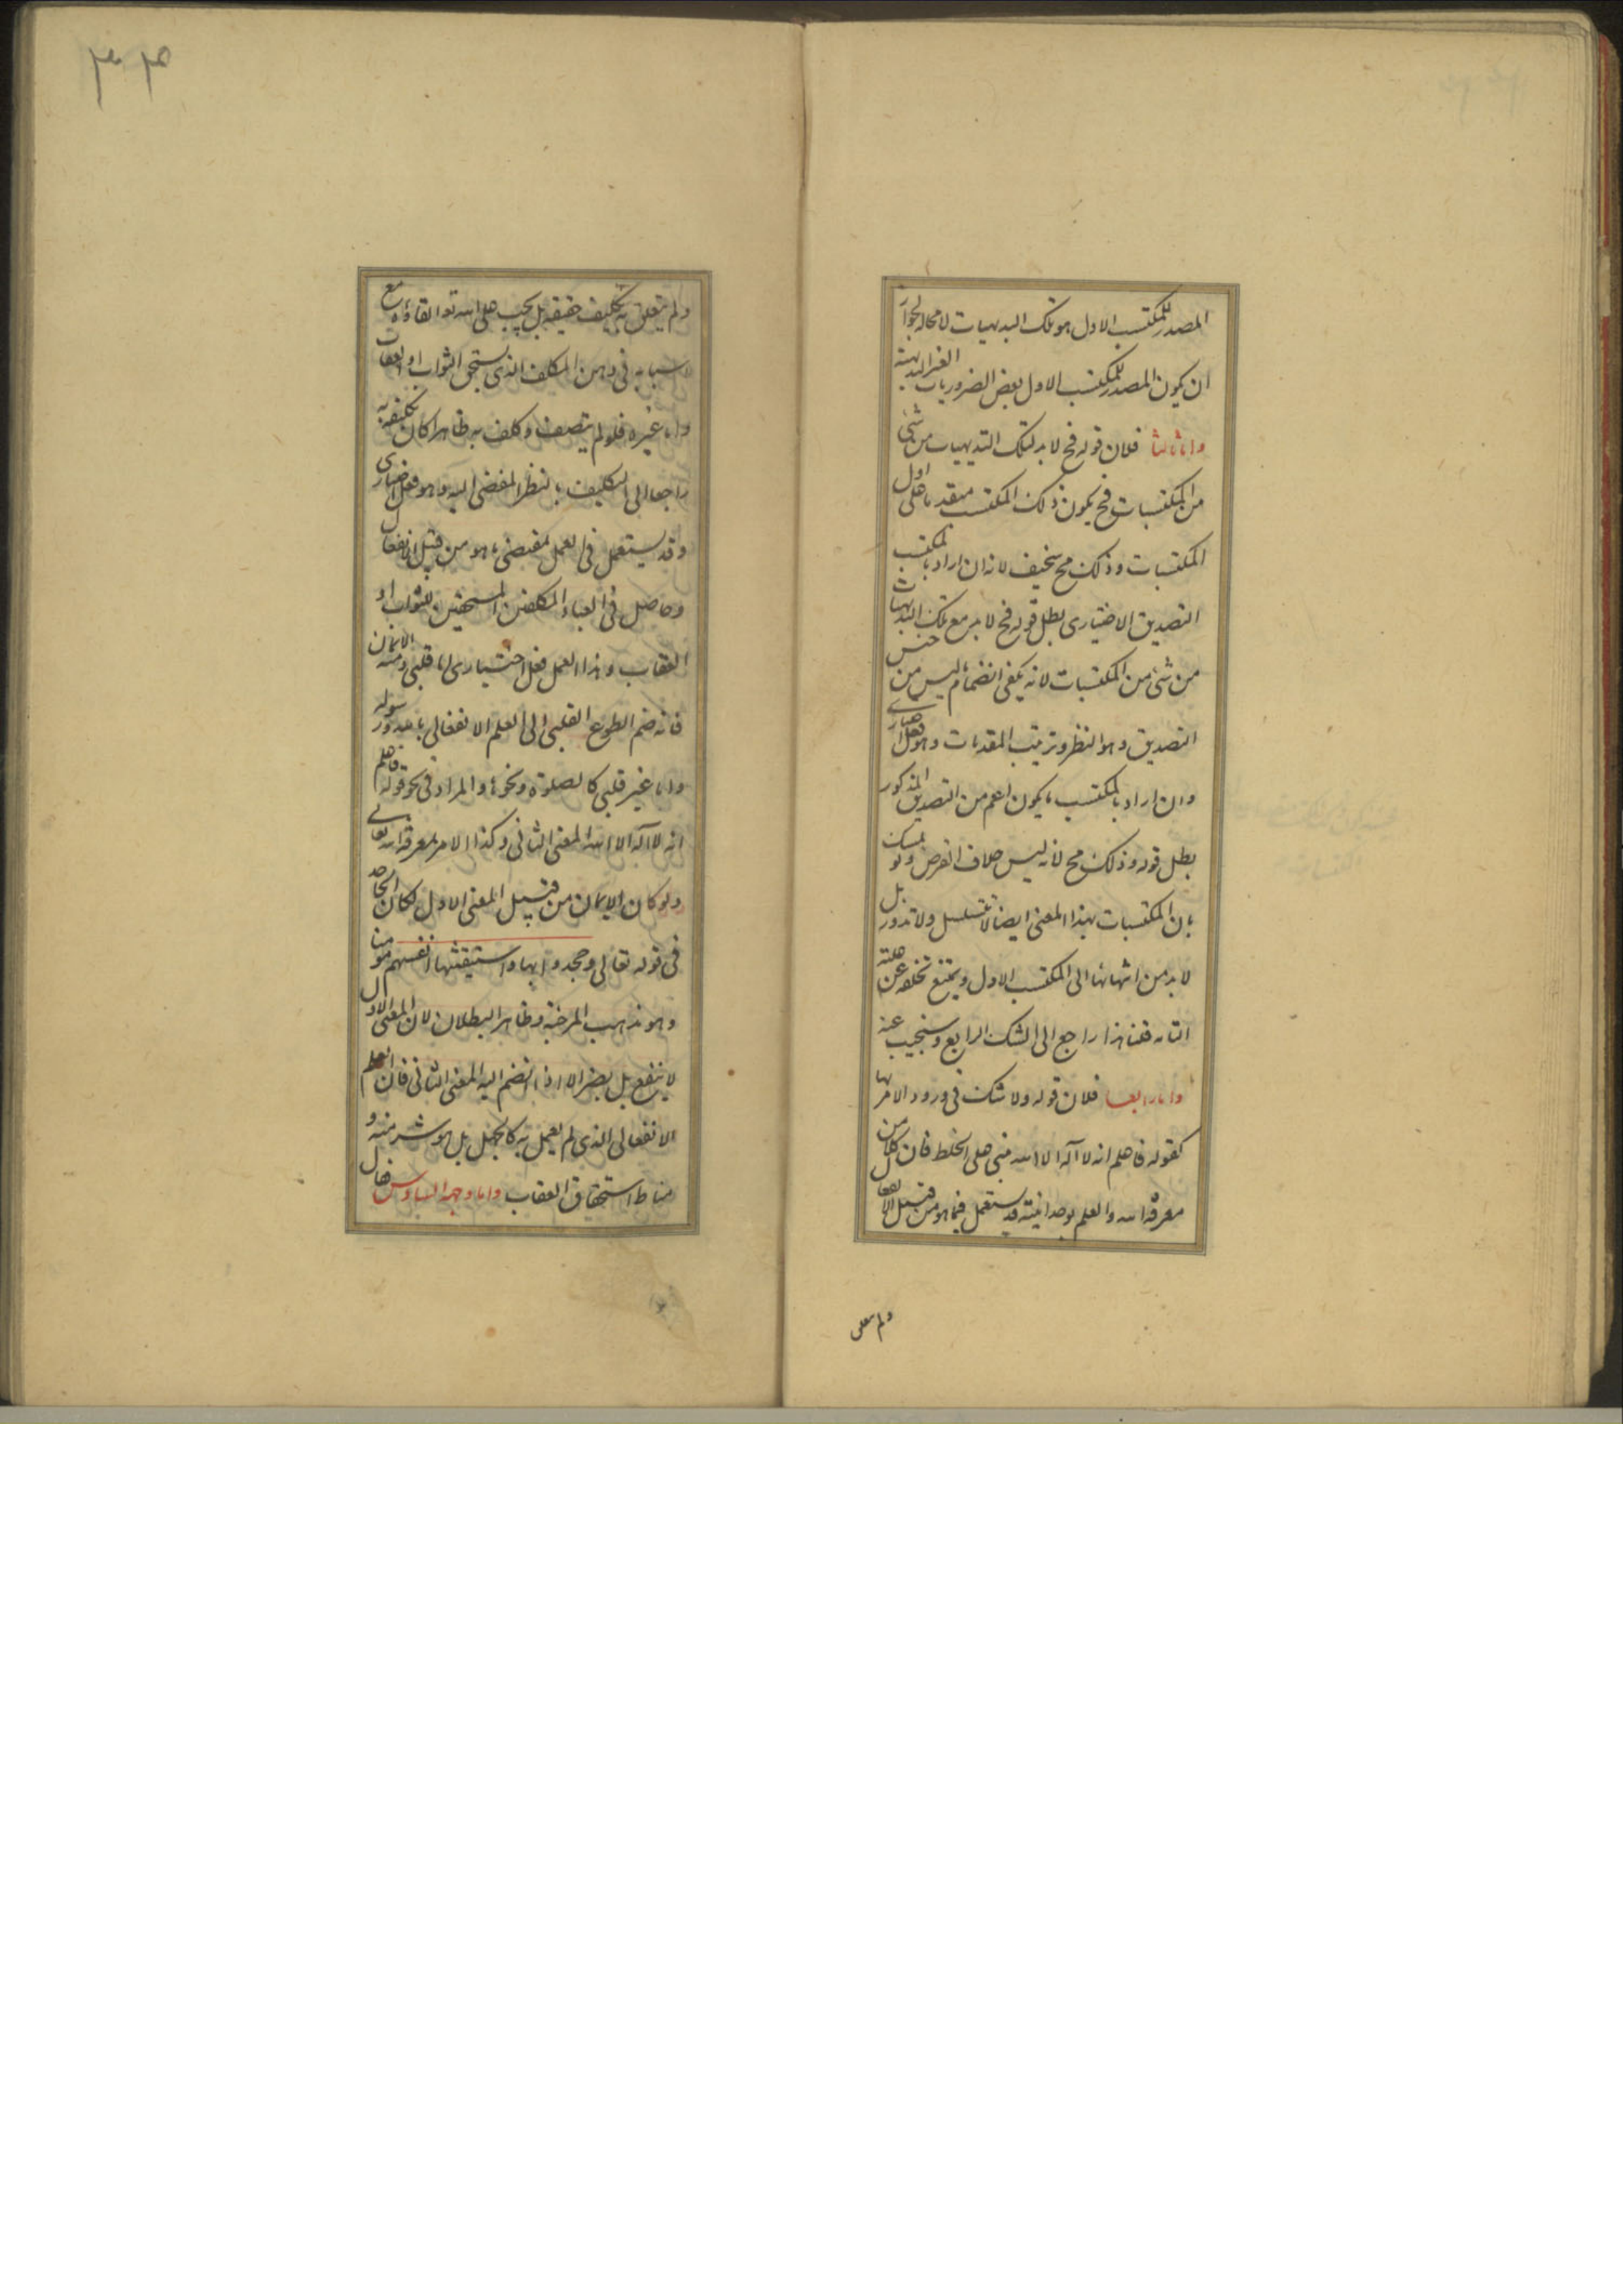 المصدر للمكتسب الاول هو تلك البديهيات لا محالة لجواز
ان يكون المصدر للمكتسب الاول بعض الضروريات الغير البديهية
واما ثالثا فلان قوله فح لا بد لتلك البديهيات من شئ
من المكتسبات فح يكون ذلك المكتسب متقدما على اول
المكتسبات وذلك مح سخيف لانه ان اراد بالمكتسب
التصديق الاختياري بطل قوله فح لا بد مع تلك البديهيات
من شئ من المكتسبات لانه يكفى انضمام ما ليس من جنس
التصديق وهو النظر وترتيب المقدمات وهو فعل اختياري
وان اراد بالمكتسب ما يكون اعم من التصديق المذكور
بطل قوله وذلك مح لانه ليس خلاف الفرض ولو تمسك
بان المكتسبات بهذا المعنى ايضا لا تتسلسل ولا تدور بل
لا بد من انتهائها الى المكتسب الاول ويمتنع تخلفه عن علته
التامه قلنا هذا راجع الى الشك الرابع وسنجيب عنه
واما رابعا فلان قوله ولا شك فى ورود الامر بها
كقوله فاعلم انه لا اله الا الله مبنى على الخلط فان كلا من
معرفة الله والعلم بوحدانيته قد يستعمل فيما هو من قبيل الانفعال
ولم يتعلق
٣٠٣
ولم يتعلق به تكليف حقيقة بل يجب على الله تع القاؤه مع
اسبابه فى ذهن المكلف الذى يستحق الثواب او العقاب
واما غيره فلو لم يتصف وكلف به ظاهرا كان تكليفه به
راجعا الى التكليف بالنظر المفضى اليه وهو فعل اختيارى
وقد يستعمل فى العمل بمقتضى ما هو من قبيل الانفعال
وحاصل فى العباد المكلفين المستحقين للثواب او
العقاب وهذا العمل فعل اختيارى اما قلبى ومنه الايمان
فانه ضم الطوع القلبى الى العلم الانفعالى بالله ورسوله
واما غير قلبى كالصلوة ونحوها والمراد فى نحو قوله فاعلم
انه لا اله الا الله المعنى الثانى وكذا الامر بمعرفة الله تعالى
ولو كان الايمان من قبيل المعنى الاول لكان الجاحد
فى قوله تعالى وجحدوا بها واستيقنتها انفسهم مؤمنا
وهو مذهب المرجئة وظاهر البطلان لان المعنى الاول
لا ينفع بل يضر الا اذا انضم اليه المعنى الثانى فان العلم
الانفعالى الذى لم يعمل به كالجهل بل هو شر منه و
مناط استحقاق العقاب واما وجه السادس فقال